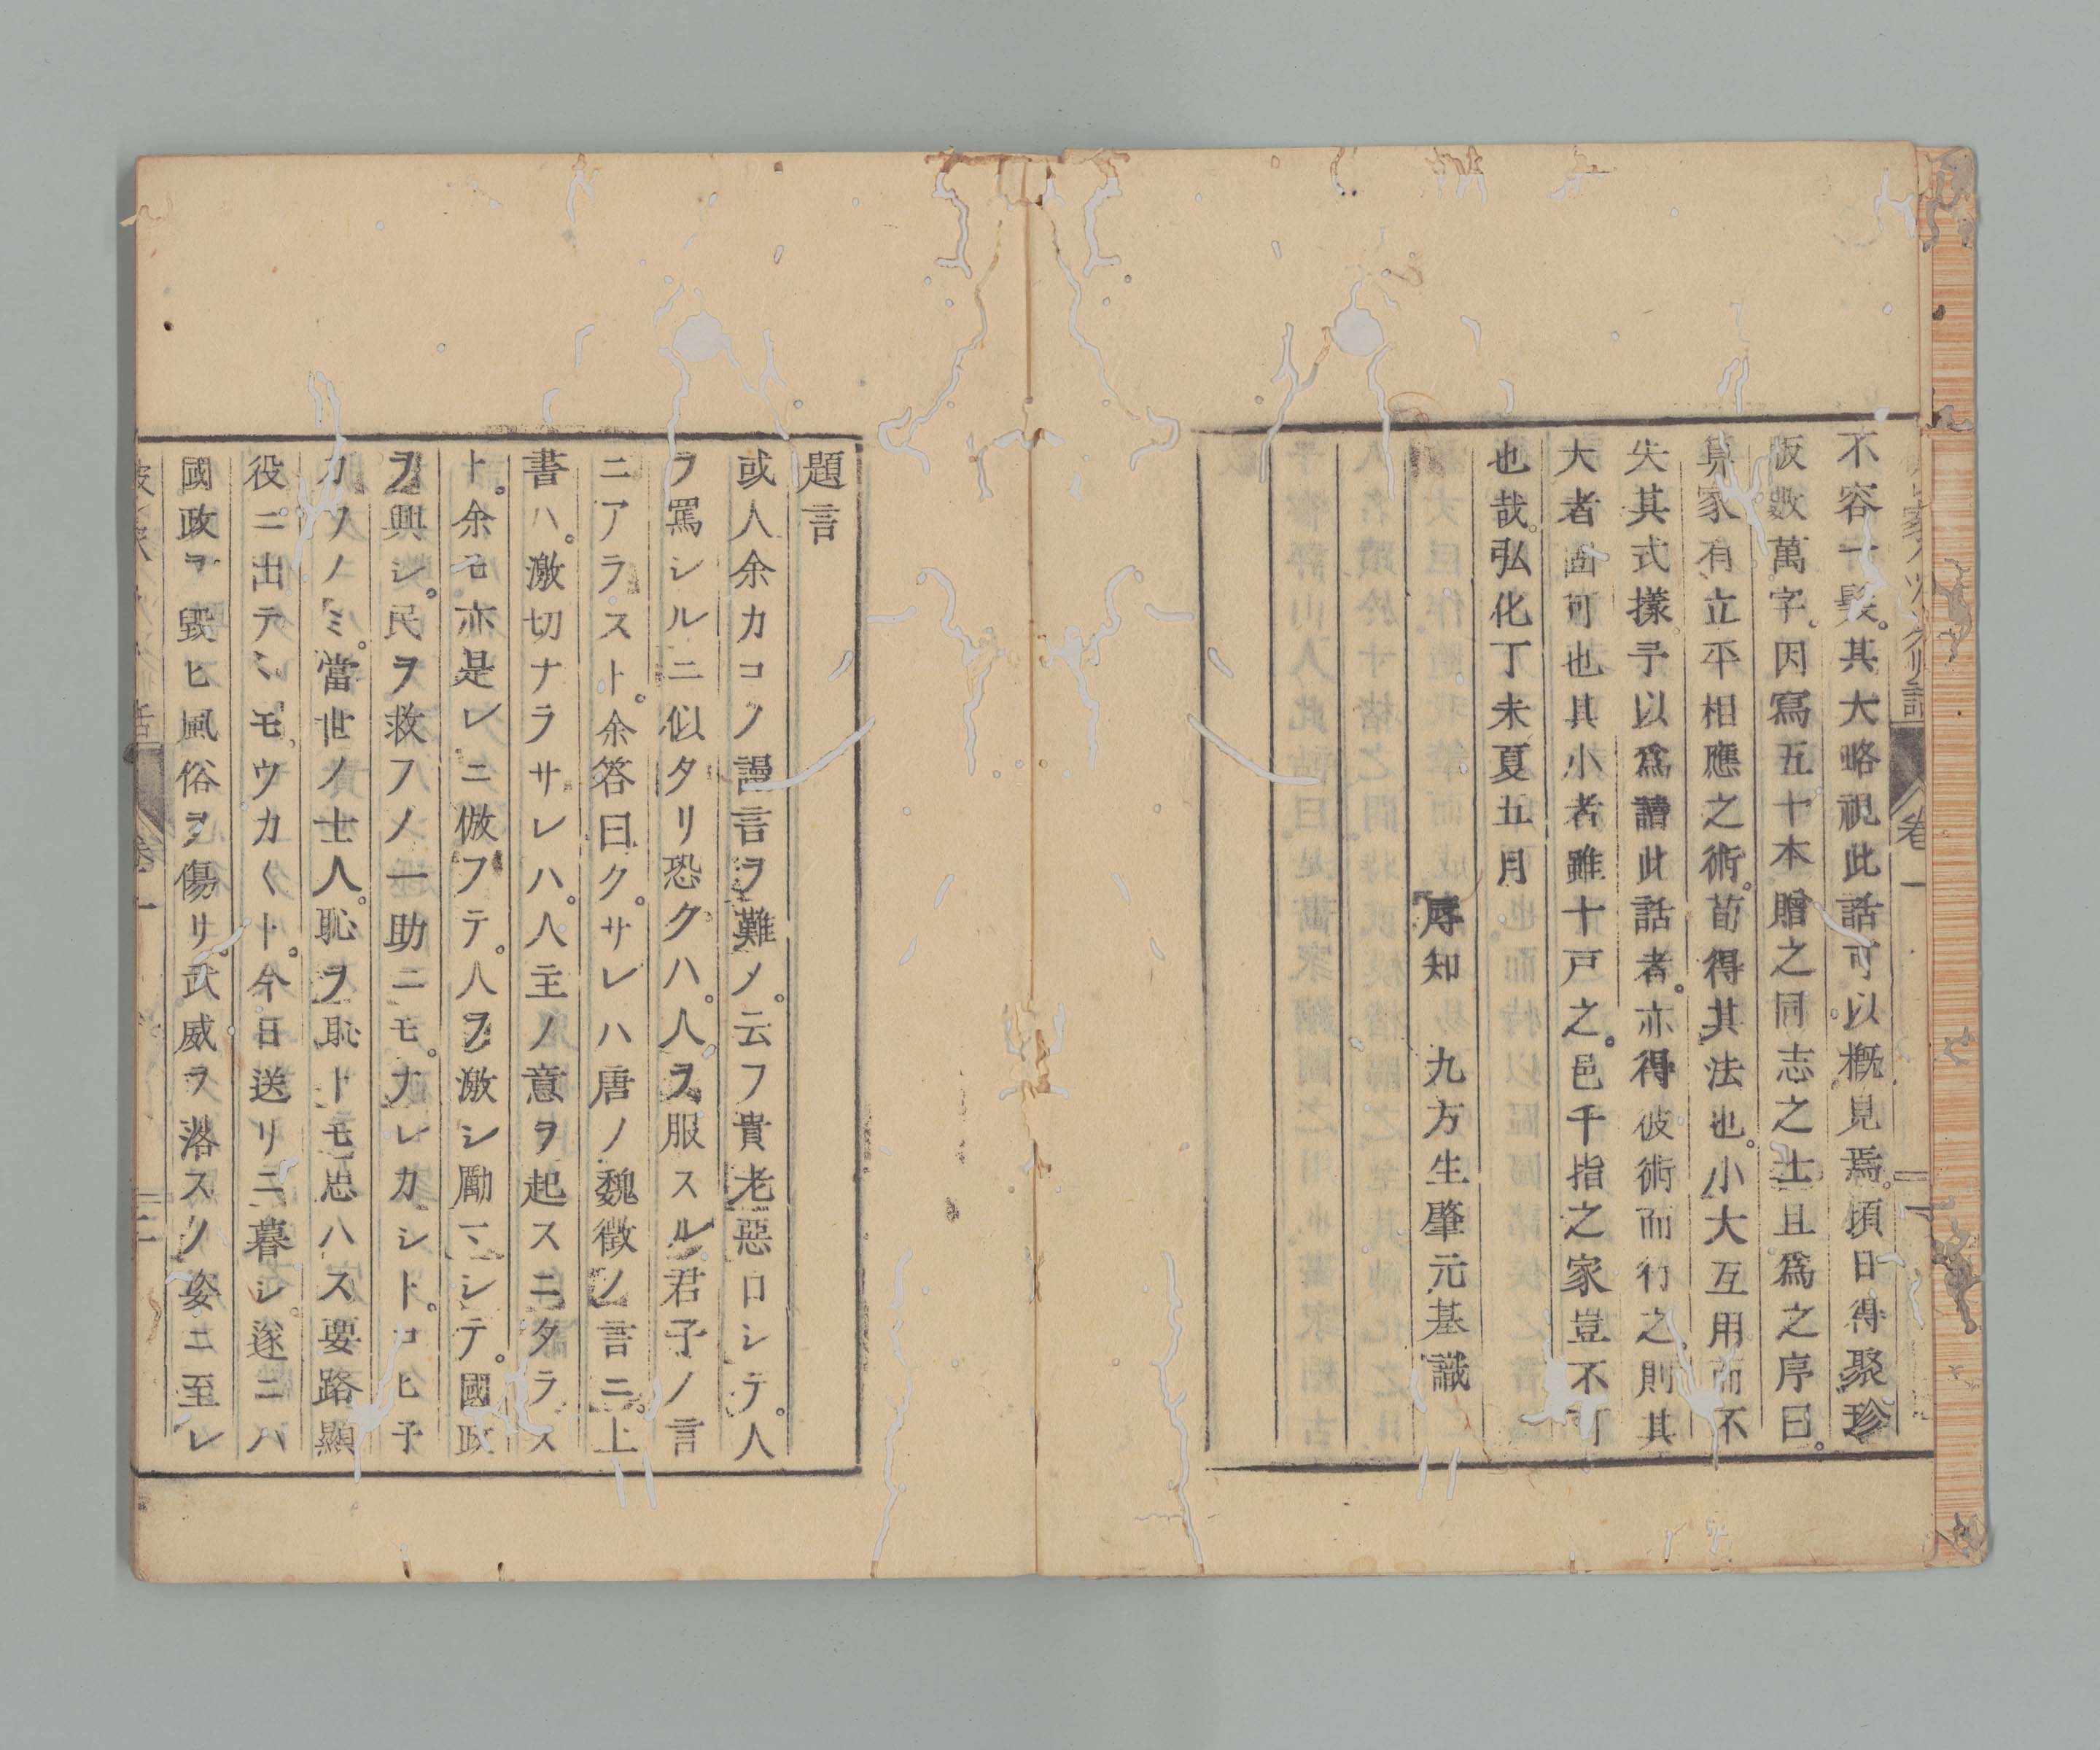 不容一髮。其大略視此話可以概見焉。頃日得聚珍
版數萬字。因寫五十本贈之同志之士且爲之序曰。
算家有立平相應之術。苟得其法也。小大互用而不
失其式樣。予以爲讀此話者。亦得彼術而行之。則其
大者固可也其小者雖十戸之。邑千指之家豈不可
也哉。弘化丁未夏五月
辱知　九方生肇元基識
題言
或人余カコノ謾言ヲ難メ。云フ貴老惡口シテ。人
ヲ罵シルニ似タリ恐クハ。人ヲ。服スル君子ノ言
ニアラスト。余答曰ク。サレハ唐ノ魏徴ノ言ニ。上
書ハ。激切ナラサレハ。人主ノ意ヲ起スニタラス
ト。余モ亦是レニ倣フテ。人ヲ激シ勵マシテ。國政
ヲ興シ。民ヲ救フノ一助ニモ。ナレカシト。コヒ子
カフノミ。當世ノ士人。恥ヲ恥トモ思ハス要路顯
役ニ出テヽモ。ウカ〱ト。今日送リニ暮シ。遂ニハ
國政ヲ毀ヒ風俗ヲ傷リ。武威ヲ落スノ姿ニ至レ
卷一